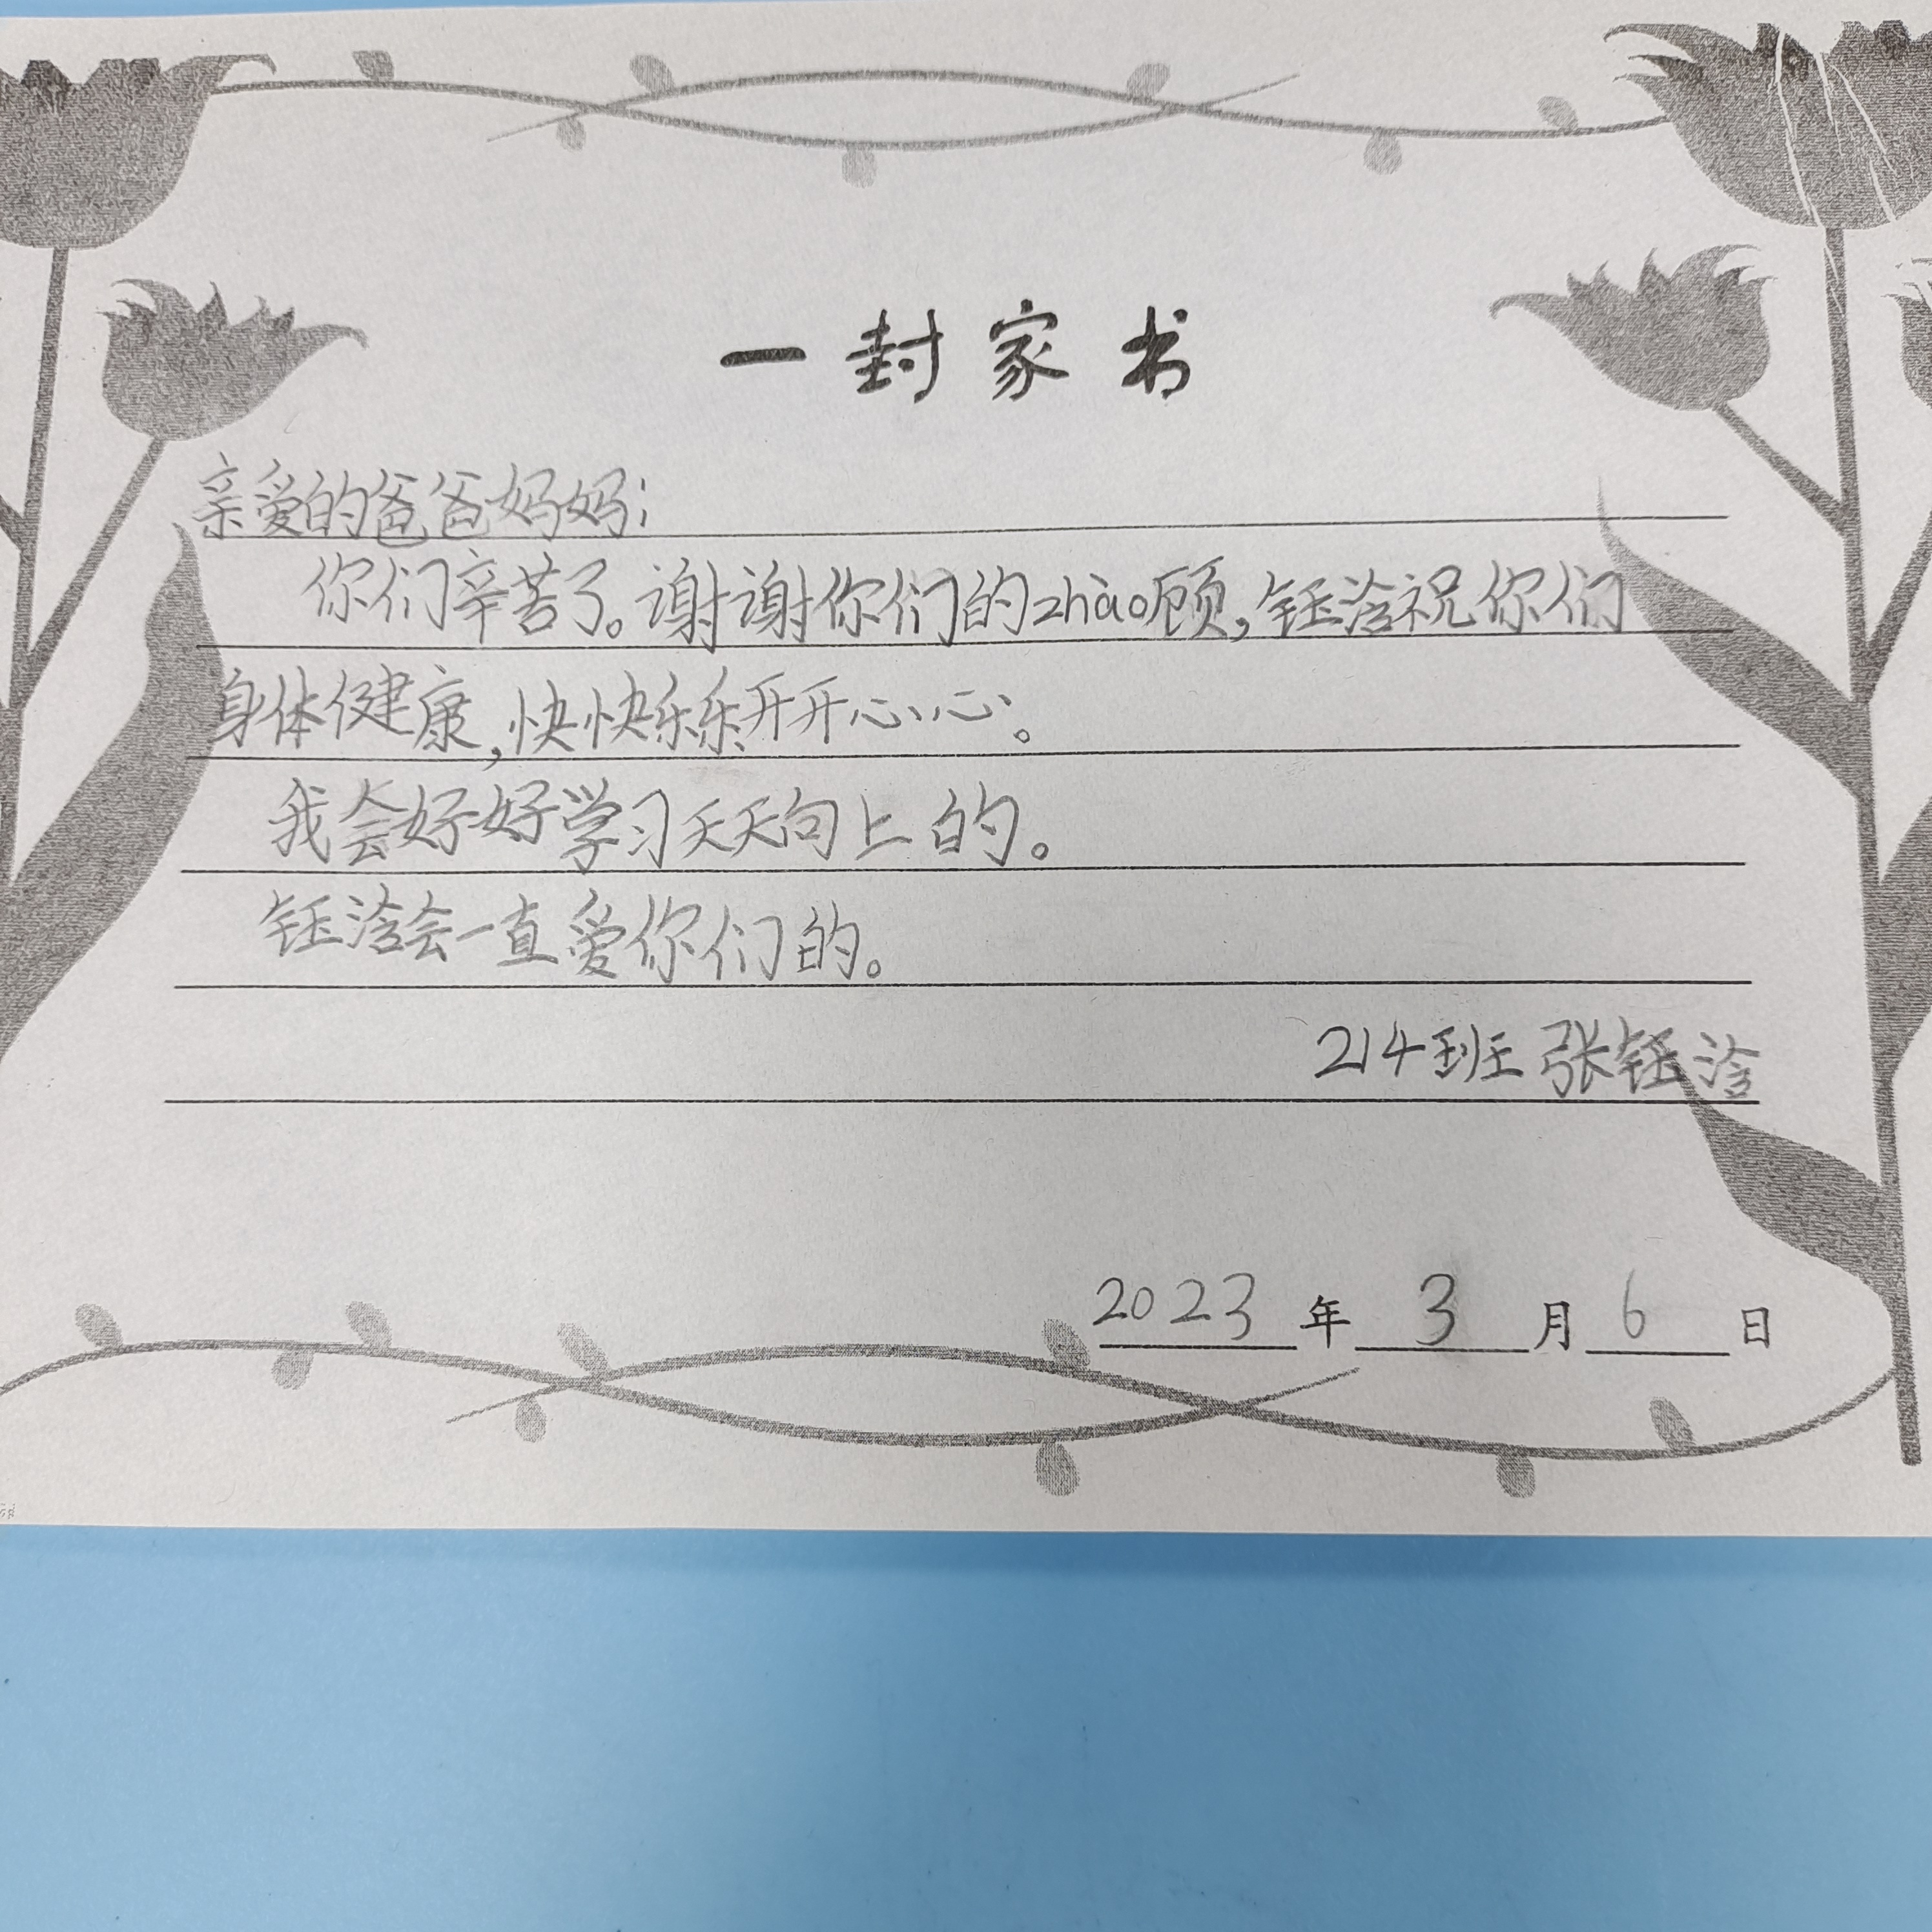 一封家书
亲爱的爸爸妈妈:
你们辛苦了。谢谢你们的zhào顾,钰浛祝你们
身体健康,快快乐乐开开心心。
我会好好学习天天向上的。
钰浛会一直爱你们的。
214班 张钰浛
2023年3月6日